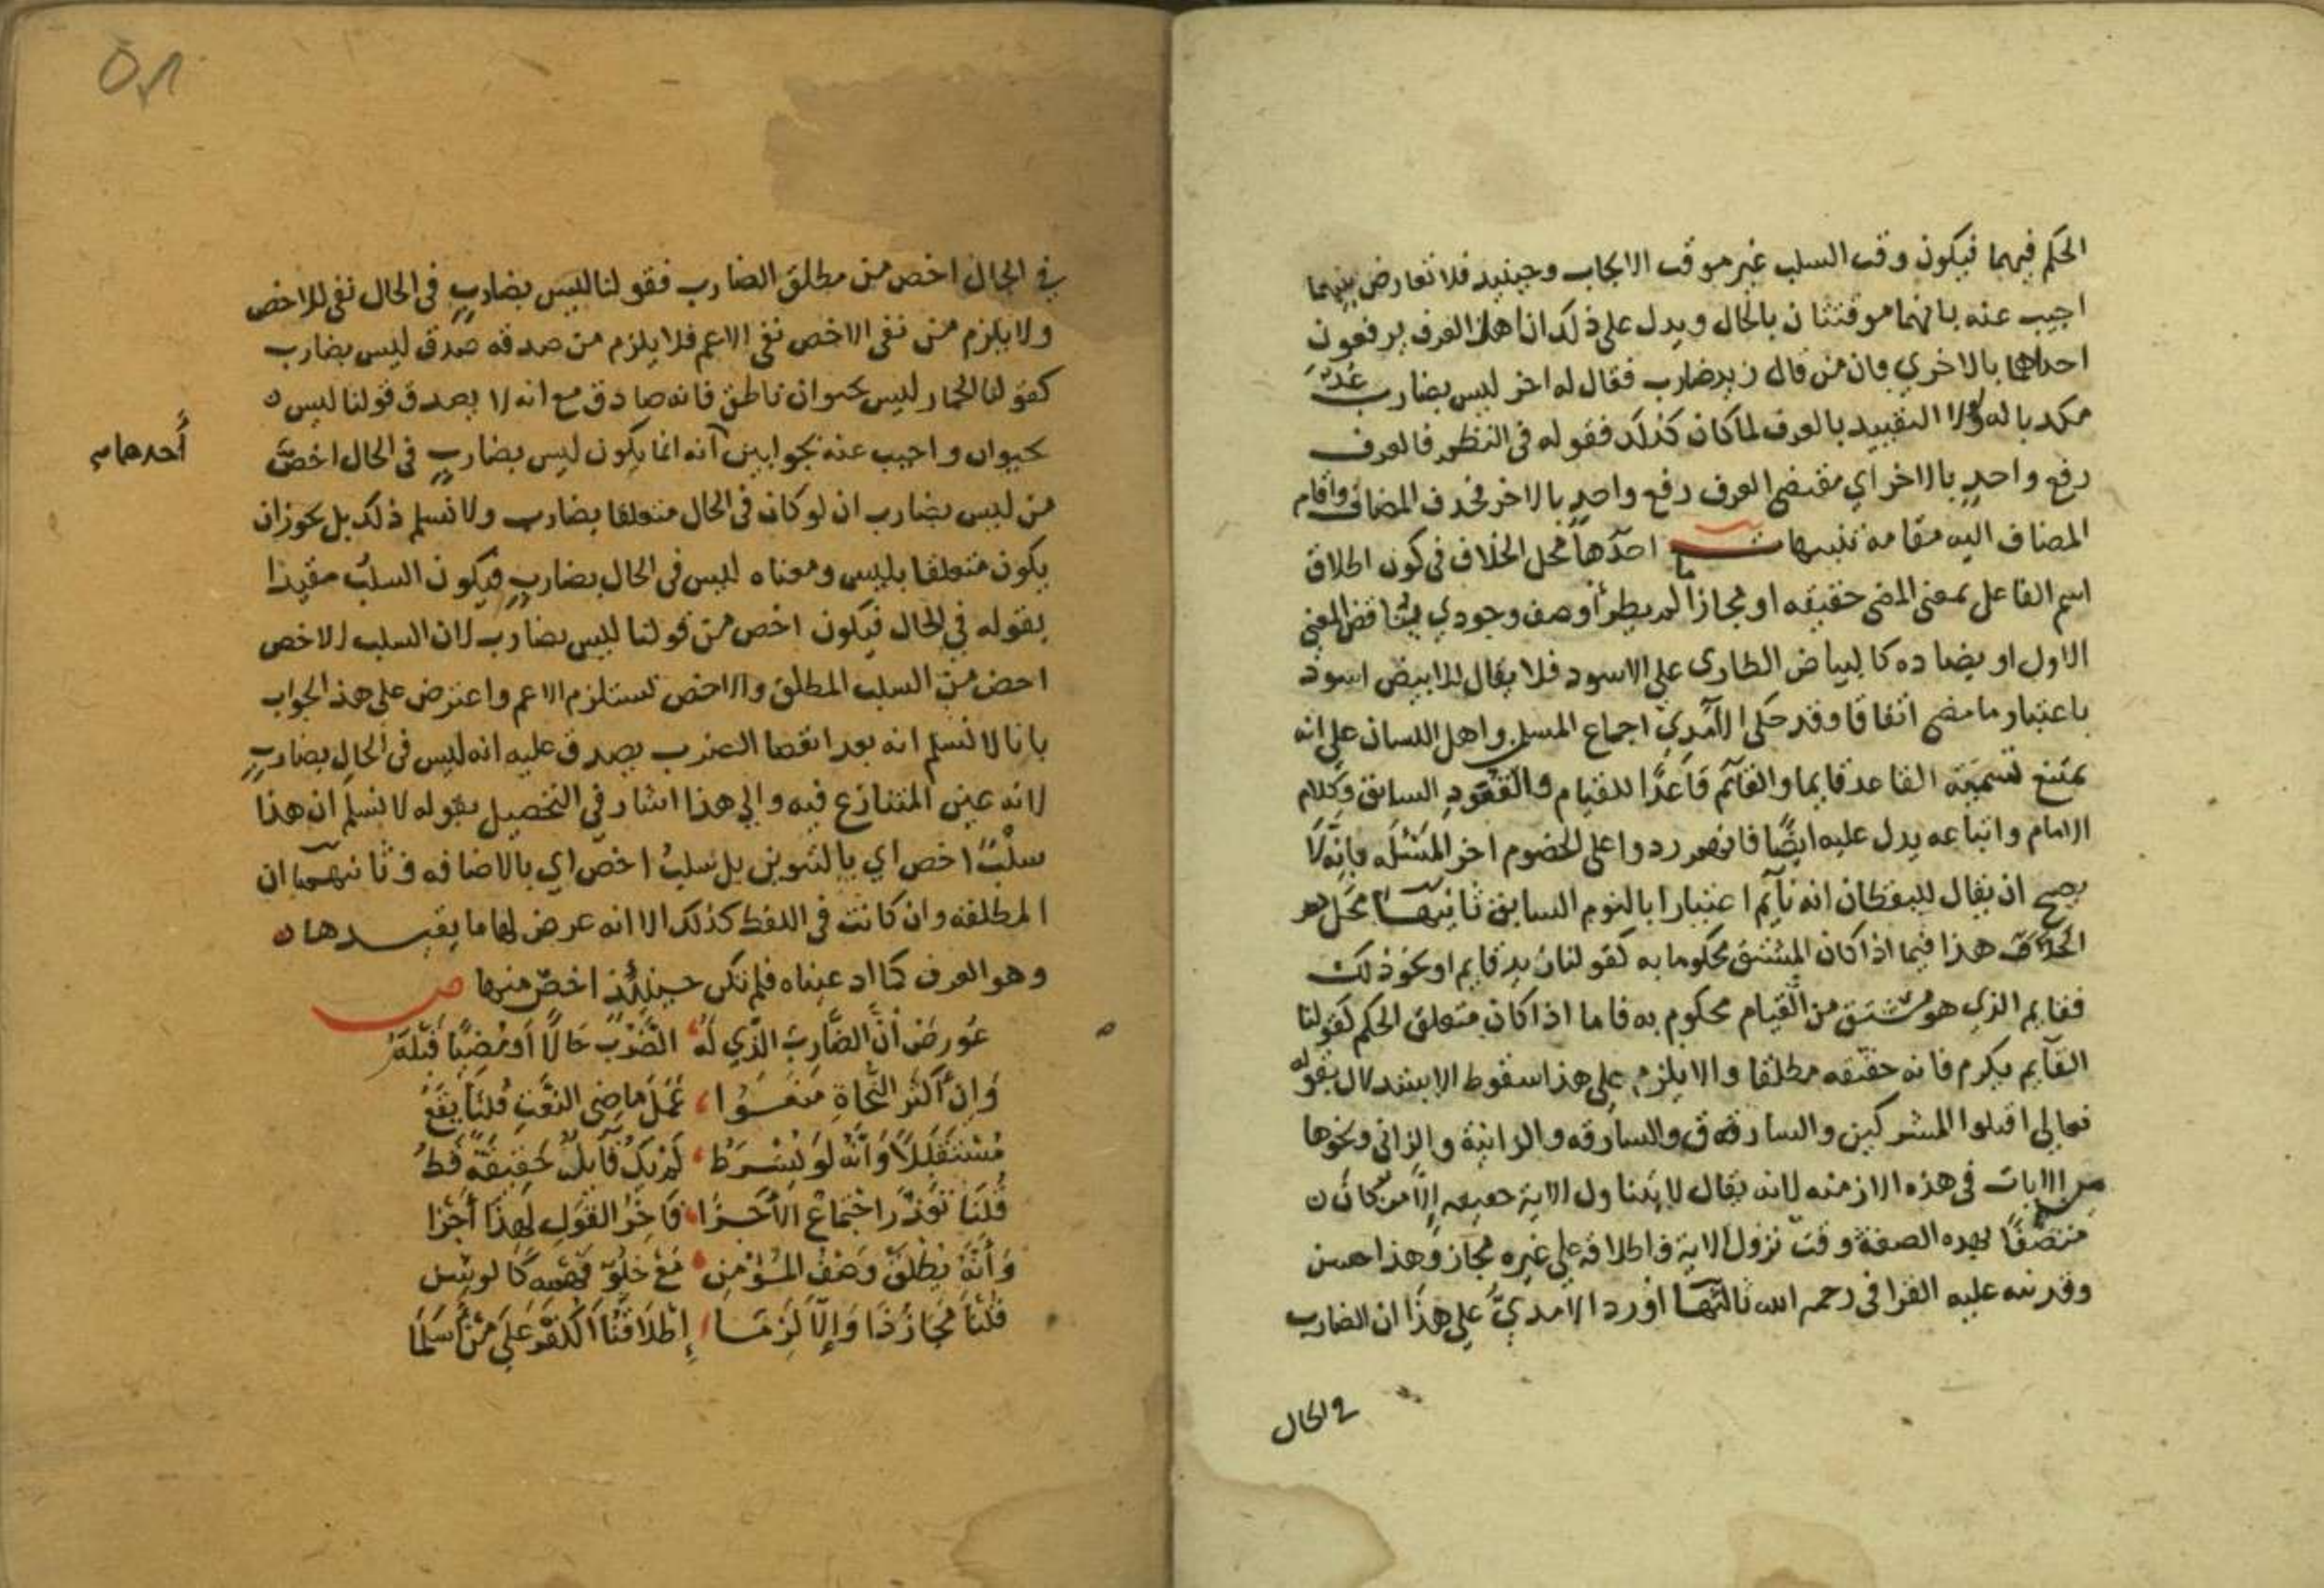 الحكم فيهما فيكون وقت السلب غير موقت الايجاب وحينيد فلا تعارض بينهما
اجيب عنه بانهما موقتتان بالحال ويدل على ذلك ان اهل العرف يرفعون
احداهما بالاخري فان من قال زيد ضارب فقال له اخر ليس بضارب عُدّ
مكذبا له ولولا التقييد بالعرف لما كان كذلك فقوله في النظم فالعرف
رفع واحدٍ بالاخر اي مقتضي العرف رفع واحدٍ بالاخر فحذف المضاف واقام
المضاف اليه مقامه تنبيهات احدّها محل الخلاف في كون اطلاق
اسم الفاعل بمعنى المضي حقيقه او مجازا لم يطرأ وصف وجودي يناقض المعني
الاول او يضاده كالبياض الطاري علي الاسود فلا يقال للابيض اسود
باعتبار ما مضي اتفاقا وقد حكى الآمدي اجماع المسلمين واهل اللسان علي انه
يمتنع تسمية القاعد قايما والقآئم قاعدًا للقيام والقعود السابق وكلام
الامام واتباعه يدل عليه ايضًا فانهم ردوا على الخصوم اخر المسئله بانه لا
يصح ان يقال لليقظان انه نآيم اعتبارا بالنوم السابق ثانيها محل
الخلاف هذا فيما اذا كان المشتق محكوما به كقولنا زيد قايم او نحو ذلك
فقايم الذي هو مشتق من القيام محكوم به فاما اذا كان متعلق الحكم كقولنا
القآيم يكرم فانه حقيقه مطلقا والا يلزم على هذا سقوط الاستدلال بقوله
تعالي اقتلوا المشركين والسارق والسارقه والزانية والزاني ونحوها
من الايات في هذه الازمنه لانه يقال لا يتناول الاية حقيقه إلّا من كان
متصفًا بهذه الصفة وقت نزول الاية فاطلاقه علي غيره مجاز وهذا احسن
وقد نبه عليه القرافي رحمه الله ثالثها اورد الامدي على هذا ان الضارب
في الحال
في الحال اخص من مطلق الضارب فقولنا ليس بضاربٍ في الحال نفي للاخص
ولا يلزم من نفي الاخص نفي الاعم فلا يلزم من صدقه صدق ليس بضارب
كقولنا الحمار ليس بحيوان ناطق فانه صادق مع انه لا يصدق قولنا ليس
بحيوان واجيب عنه بجوابين آنه انما يكون ليس بضاربٍ في الحال اخصّ
أحدهما
من ليس بضارب ان لو كان في الحال متعلقا بضارب ولا نسلم ذلك بل يجوز ان
يكون متعلقا بليس ومعناه ليس في الحال بضاربٍ فيكون السلبُ مقيدا
بقوله في الحال فيكون اخص من قولنا ليس بضارب لان السلب الاخص
اخص من السلب المطلق والاخص تستلزم الاعم واعترض على هذا الجواب
بانا لا نسلم انه بعد انقضا الضرب يصدق عليه انه ليس في الحال بضاربٍ
لانه عين المتنازع فيه والي هذا اشار في التحصيل بقوله لا نسلم ان هذا
سلْبٌ اخص اي بالتنوين بل سلبُ اخصّ اي بالاضافه وثانيهما ان
المطلقه وان كانت في اللفظ كذلك الا انه عرض لها ما يقيدها
وهو العرف كما ادعيناه فلم تكن حينئذٍ اخصّ منها ص
عُورضَ أنّ الضّاربَ الّذي لَهُ الضّرْبُ حَالًا أو مُضِيًا قَبْلَهُ
وَإن أكثر النّحاةِ منعوا عَمَلَ ماضِي النّعْتِ قُلنا يَقَعُ
مُسْتَقْبَلًا وَأنّه لَو يُشْرَطُ لَمْ يَكُ قَآيلٌ حَقِيقَةً قَطُ
قُلْنَا تعذّر اجْتمَاعُ الأَجْزا فآخِرُ القَولِ لهذَا أجْزا
وَأنّهُ يُطلَقُ وَصْفُ المُؤمِنِ مَعْ خلوّ فهمه كَالوَسِنِ
قُلْنا مَجازُ ذَا وَإلّا لَزِمَا إطْلَاقُنَا الكُفْرَ عَلَى مَنْ أسْلَمَا